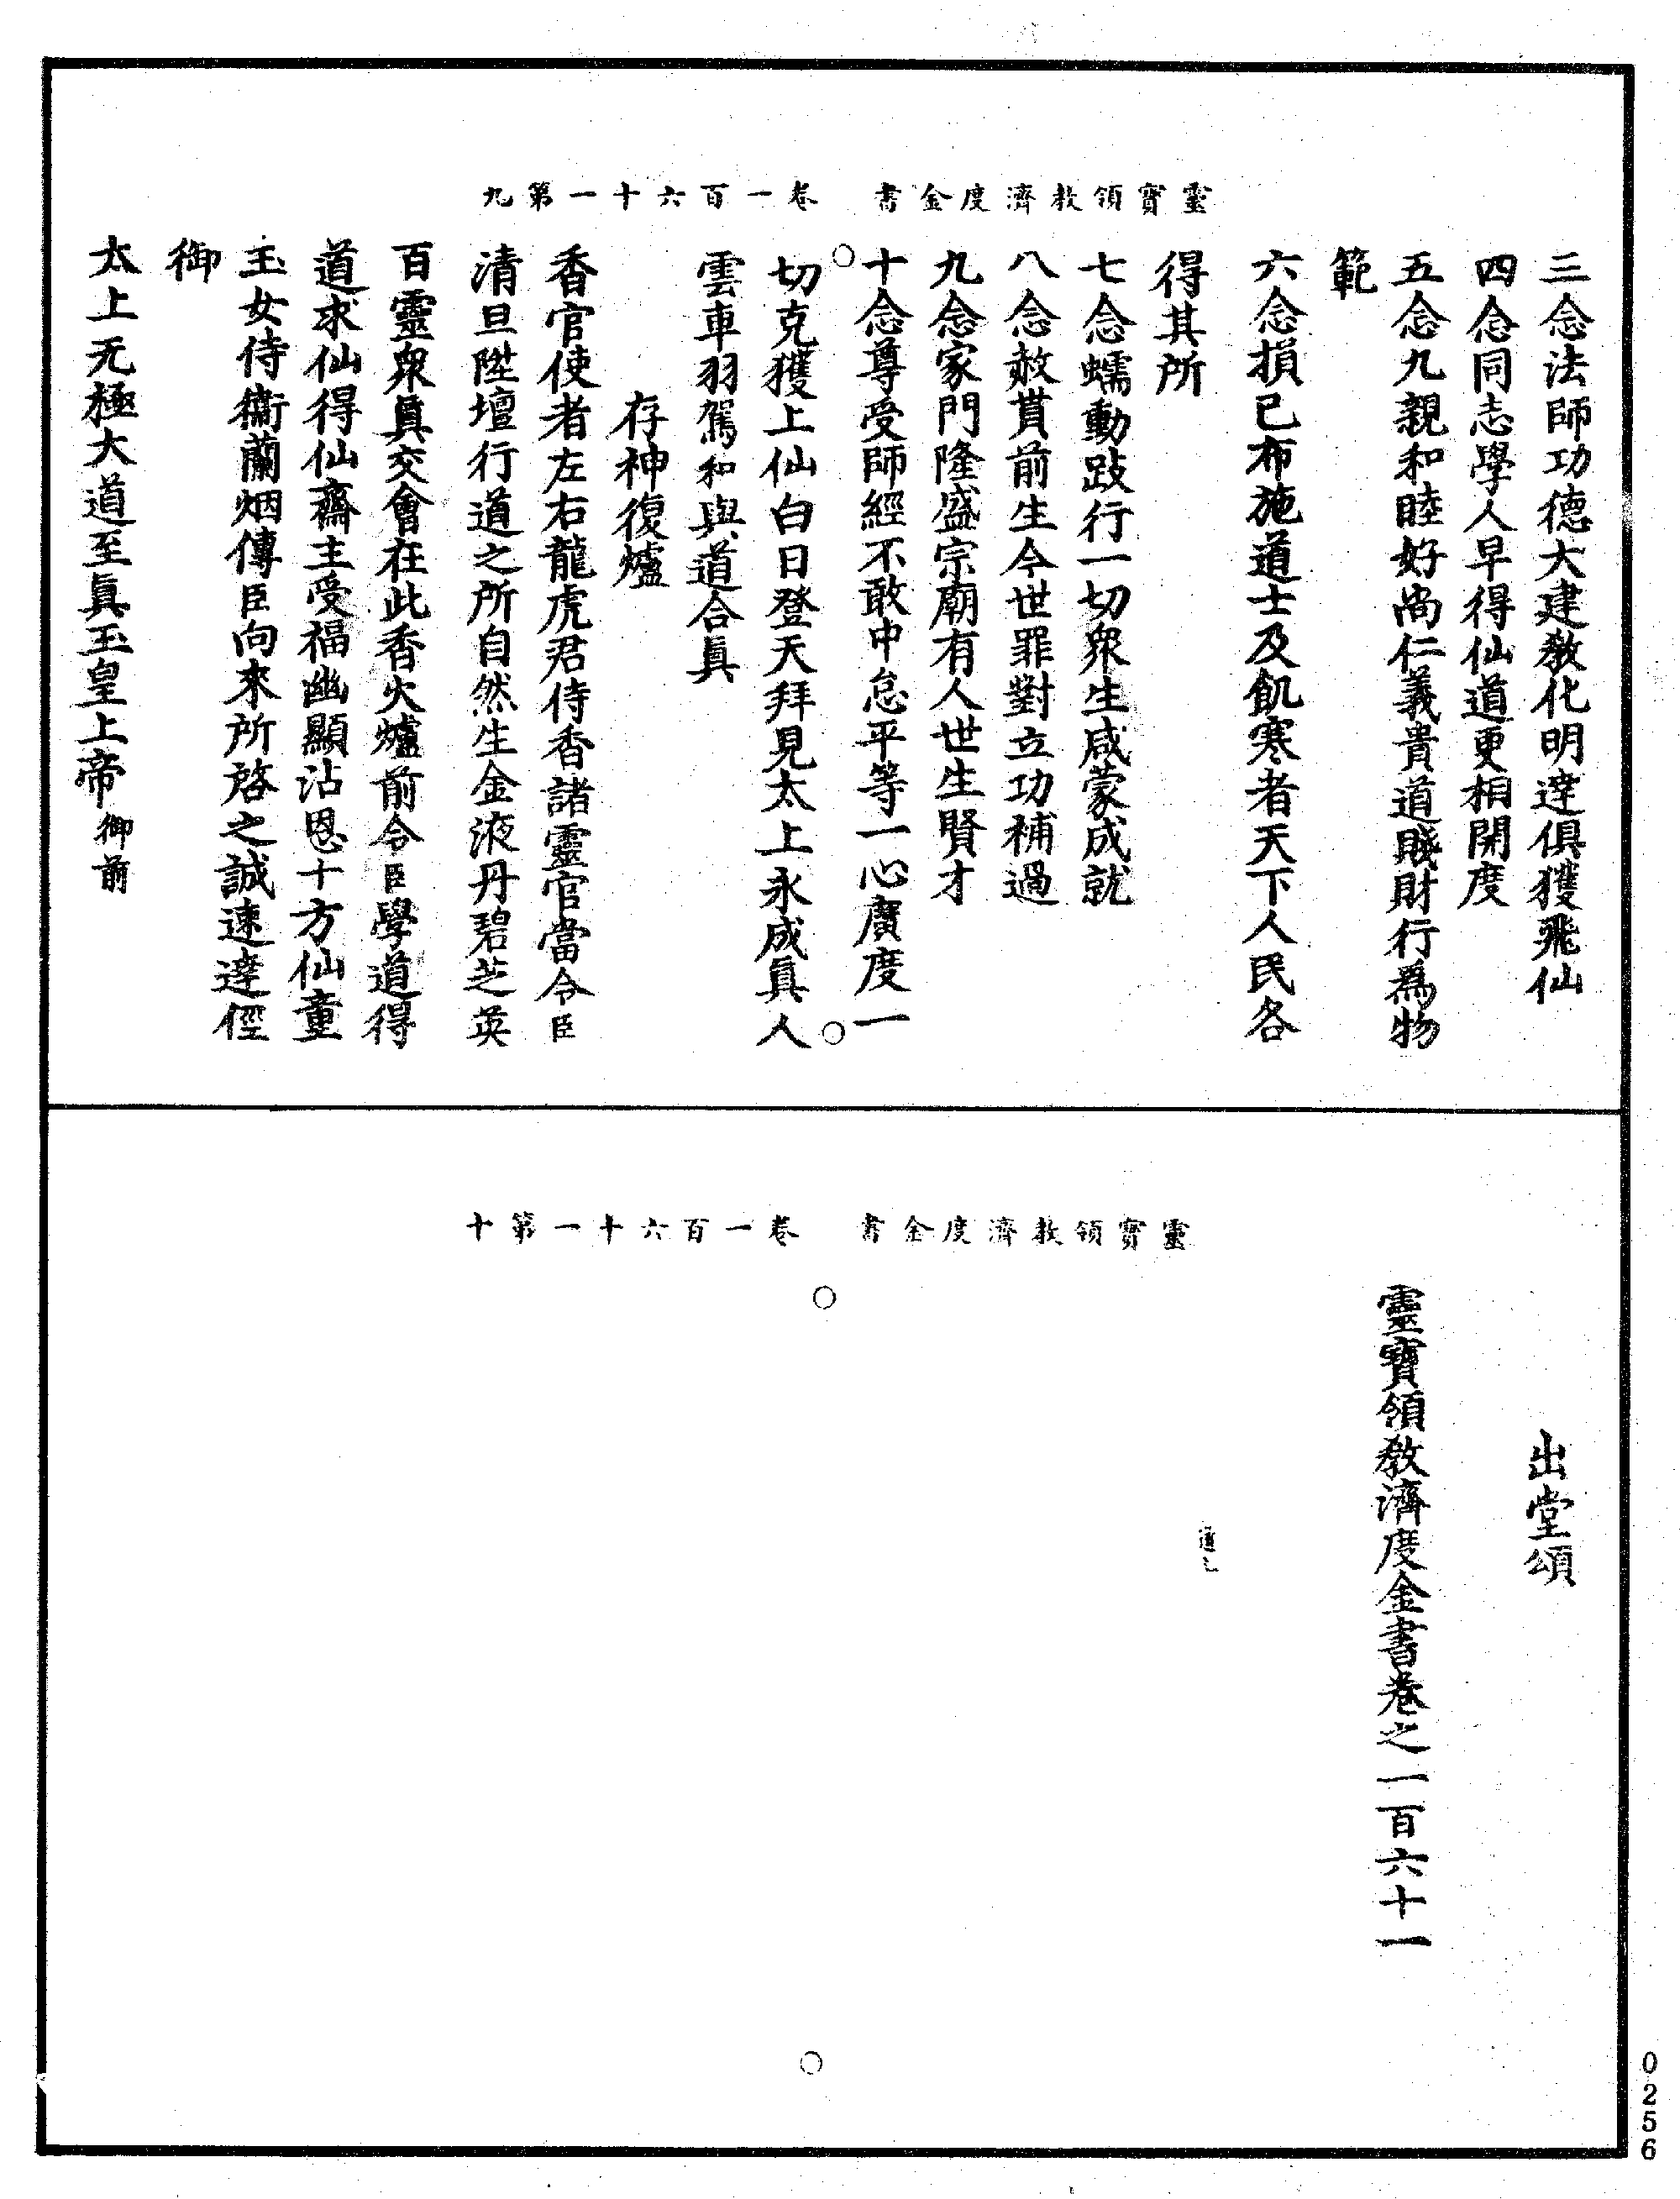 靈寶領教濟度金書　卷一百六十一第九
三念法師功德大建教化明達俱獲飛仙
四念同志學人早得仙道更相開度
五念九親和睦好尚仁義貴道賤財行爲物
範
六念損己布施道士及飢寒者天下人民各
得其所
七念蠕動跂行一切衆生咸蒙成就
八念赦貰前生今世罪對立功補過
九念家門隆盛宗廟有人世生賢才
十念尊受師經不敢中怠平等一心廣度一
切克獲上仙白日登天拜見太上永成眞人
雲車羽駕和與道合眞
存神復爐
香官使者左右龍虎君侍香諸靈官當令臣
清旦陞壇行道之所自然生金液丹碧芝英
百靈衆眞交會在此香火爐前令臣學道得
道求仙得仙齋主受福幽顯沾恩十方仙童
玉女侍衞蘭烟傳臣向來所啓之誠速達徑
御
太上无極大道至眞玉皇上帝御前
靈寶領教濟度金書　卷一百六十一第十
出堂頌
靈寶領敎濟度金書卷之一百六十一
0256